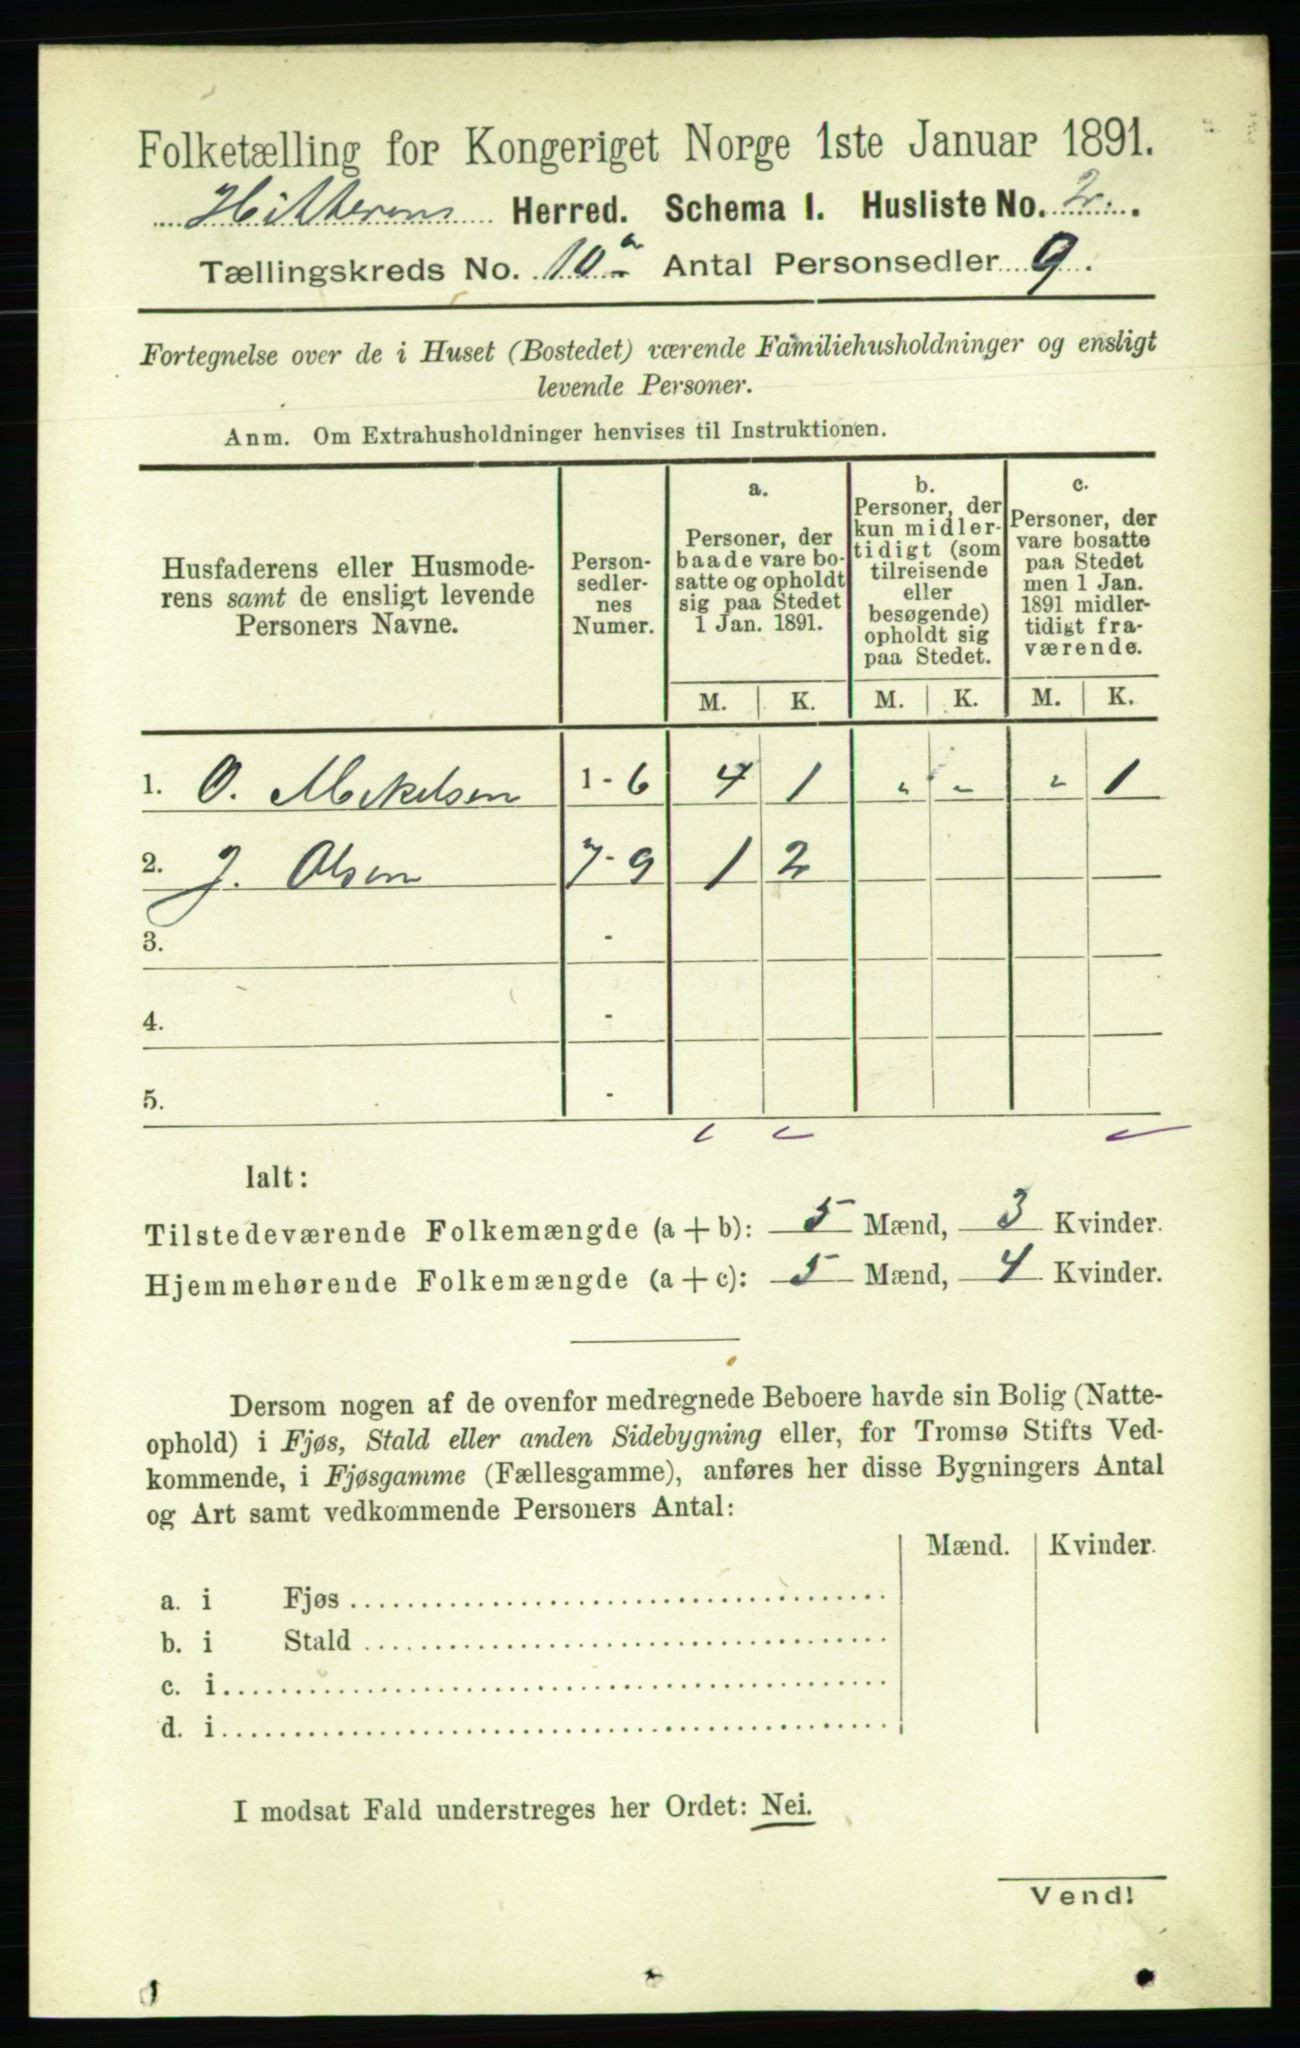 Folketælling for Kongeriget Norge 1ste Januar 1891.
Hitterens Herred. Schema I. Husliste No. 2.
Tællingskreds No. 10 a Antal Personsedler 9.
Fortegnelse over de i Huset (Bostedet) værende Familiehusholdninger og ensligt
levende Personer.
Anm. Om Extrahusholdninger henvises til Instruktionen.
Husfaderens eller Husmode-
rens samt de ensligt levende
Personers Navne.
Person-
sedler-
nes
Numer.
a.
Personer, der
baade vare bo-
satte og opholdt
sig paa Stedet
1 Jan. 1891.
b.
Personer, der
kun midler-
tidigt (som
tilreisende
eller
besøgende)
opholdt sig
paa Stedet.
c.
Personer, der
vare bosatte
paa Stedet
men 1 Jan.
1891 midler-
tidigt fra-
værende.
M. K. M. K. M. K.
1. O. Mekelsen 1-6 4 1 " " " 1
2. J. Olsen 7-9 1 2
3. -
4. -
5. -
Ialt:
Tilstedeværende Folkemængde (a + b): 5 Mænd, 3 Kvinder.
Hjemmehørende Folkemængde (a + c): 5 Mænd, 4 Kvinder.
Dersom nogen af de ovenfor medregnede Beboere havde sin Bolig (Natte-
ophold) i Fjøs, Stald eller anden Sidebygning eller, for Tromsø Stifts Ved-
kommende, i Fjøsgamme (Fællesgamme), anføres her disse Bygningers Antal
og Art samt vedkommende Personers Antal:
Mænd. Kvinder.
a. i Fjøs
b. i Stald
c. i
d. i
I modsat Fald understreges her Ordet: Nei.
Vend!